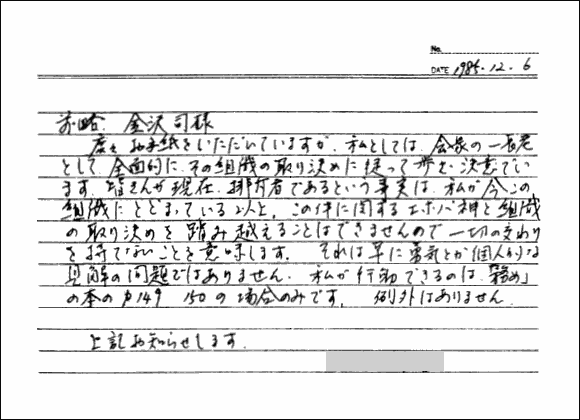 No.
DATE 1985.12.6
前略 金沢司様
度々お手紙をいただいていますが、私としては、会衆の一長老
として、全面的にその組織の取り決めに従って歩む決意でい
ます。皆さんが現在、排斥者であるという事実は、私が今この
組織にとどまっている以上、この件に関するエホバ神と組織
の取り決めを踏み越えることはできませんので一切の交わり
を持てないことを意味します。それは単に勇気とか個人的な
見解の問題ではありません。私が行動できるのは、「務め」
の本のP149 150の場合のみです。例外はありません。
上記お知らせします。